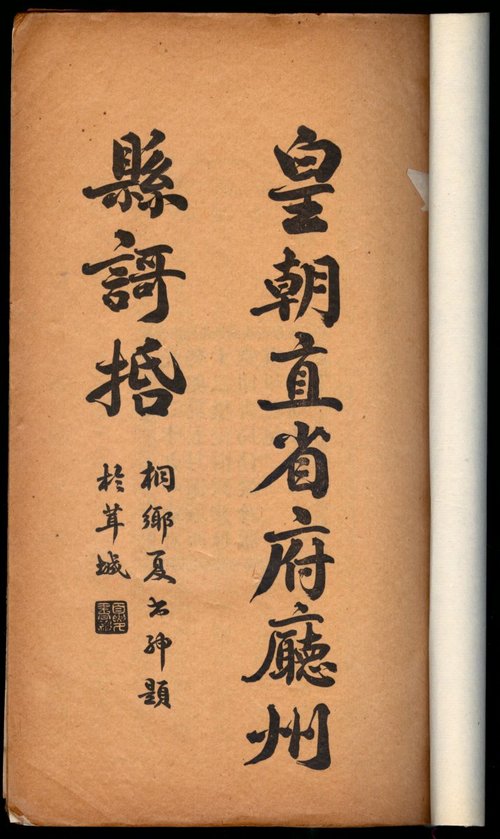 皇朝直省府廳州
縣謌括
桐鄉夏紳題
於茸城